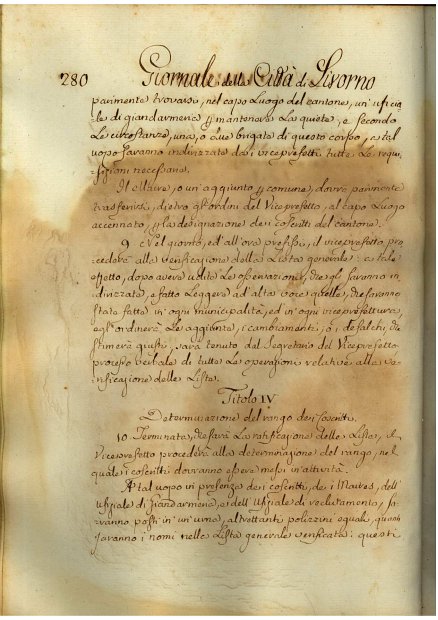 280 Giornale della Città di Livorno
parimente trovarsi, nel capo Luogo del cantone, un'uficia
le di giandarmeria p mantenere La quiete, e secondo
Le circostanze, una, o due brigate di questo corpo, a tal
uopo saranno indirizzate da i viceprefetti tutte Le requi
sizioni necessarie.
Il Maire, o un' aggiunto p comune, dovrà parimente
trasferirsi, dietro gl'ordini del Viceprefetto, al capo Luogo
accennato, p la designazione de i coscritti del cantone.
9 Nel giorno, ed all'ora prefissi, il viceprefetto pro
cederà alla verificazione della Lista generale: a tale
effetto, dopo avere udite Le osservazioni, che gli saranno in
dirizzate, e fatto Leggere ad alta voce quelle, che saranno
state fatte in ogni municipalità, ed in ogni viceprefettura,
egl' ordinerà Le aggiunte, i cambiamenti, i defalchi, che
stimerà giusti, sarà tenuto dal Segretario del Viceprefetto
processo verbale di tutte Le operazioni relative alla ve
rificazione delle Liste.
Titolo IV
Determinazione del rango de i coscritti.
10 Terminata, che sarà La rettificazione della Lista, il
Viceprefetto procederà alla determinazione del rango, nel
quale i coscritti dovranno essere messi in attività.
A tal uopo in presenza de i coscritti, de i Maires, dell'
Ufiziale di Giandarmeria, e dell' Ufiziale di reclutamento, sa
ranno posti in un'urna, altrettanti polizzini eguali, quanti
saranno i nomi nella Lista generale verificata: questi